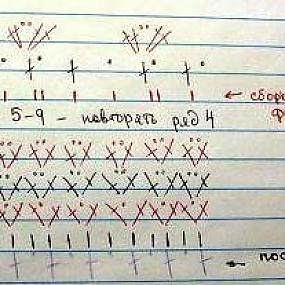 ← сборо
5-9 - повторять ряд 4
← пос